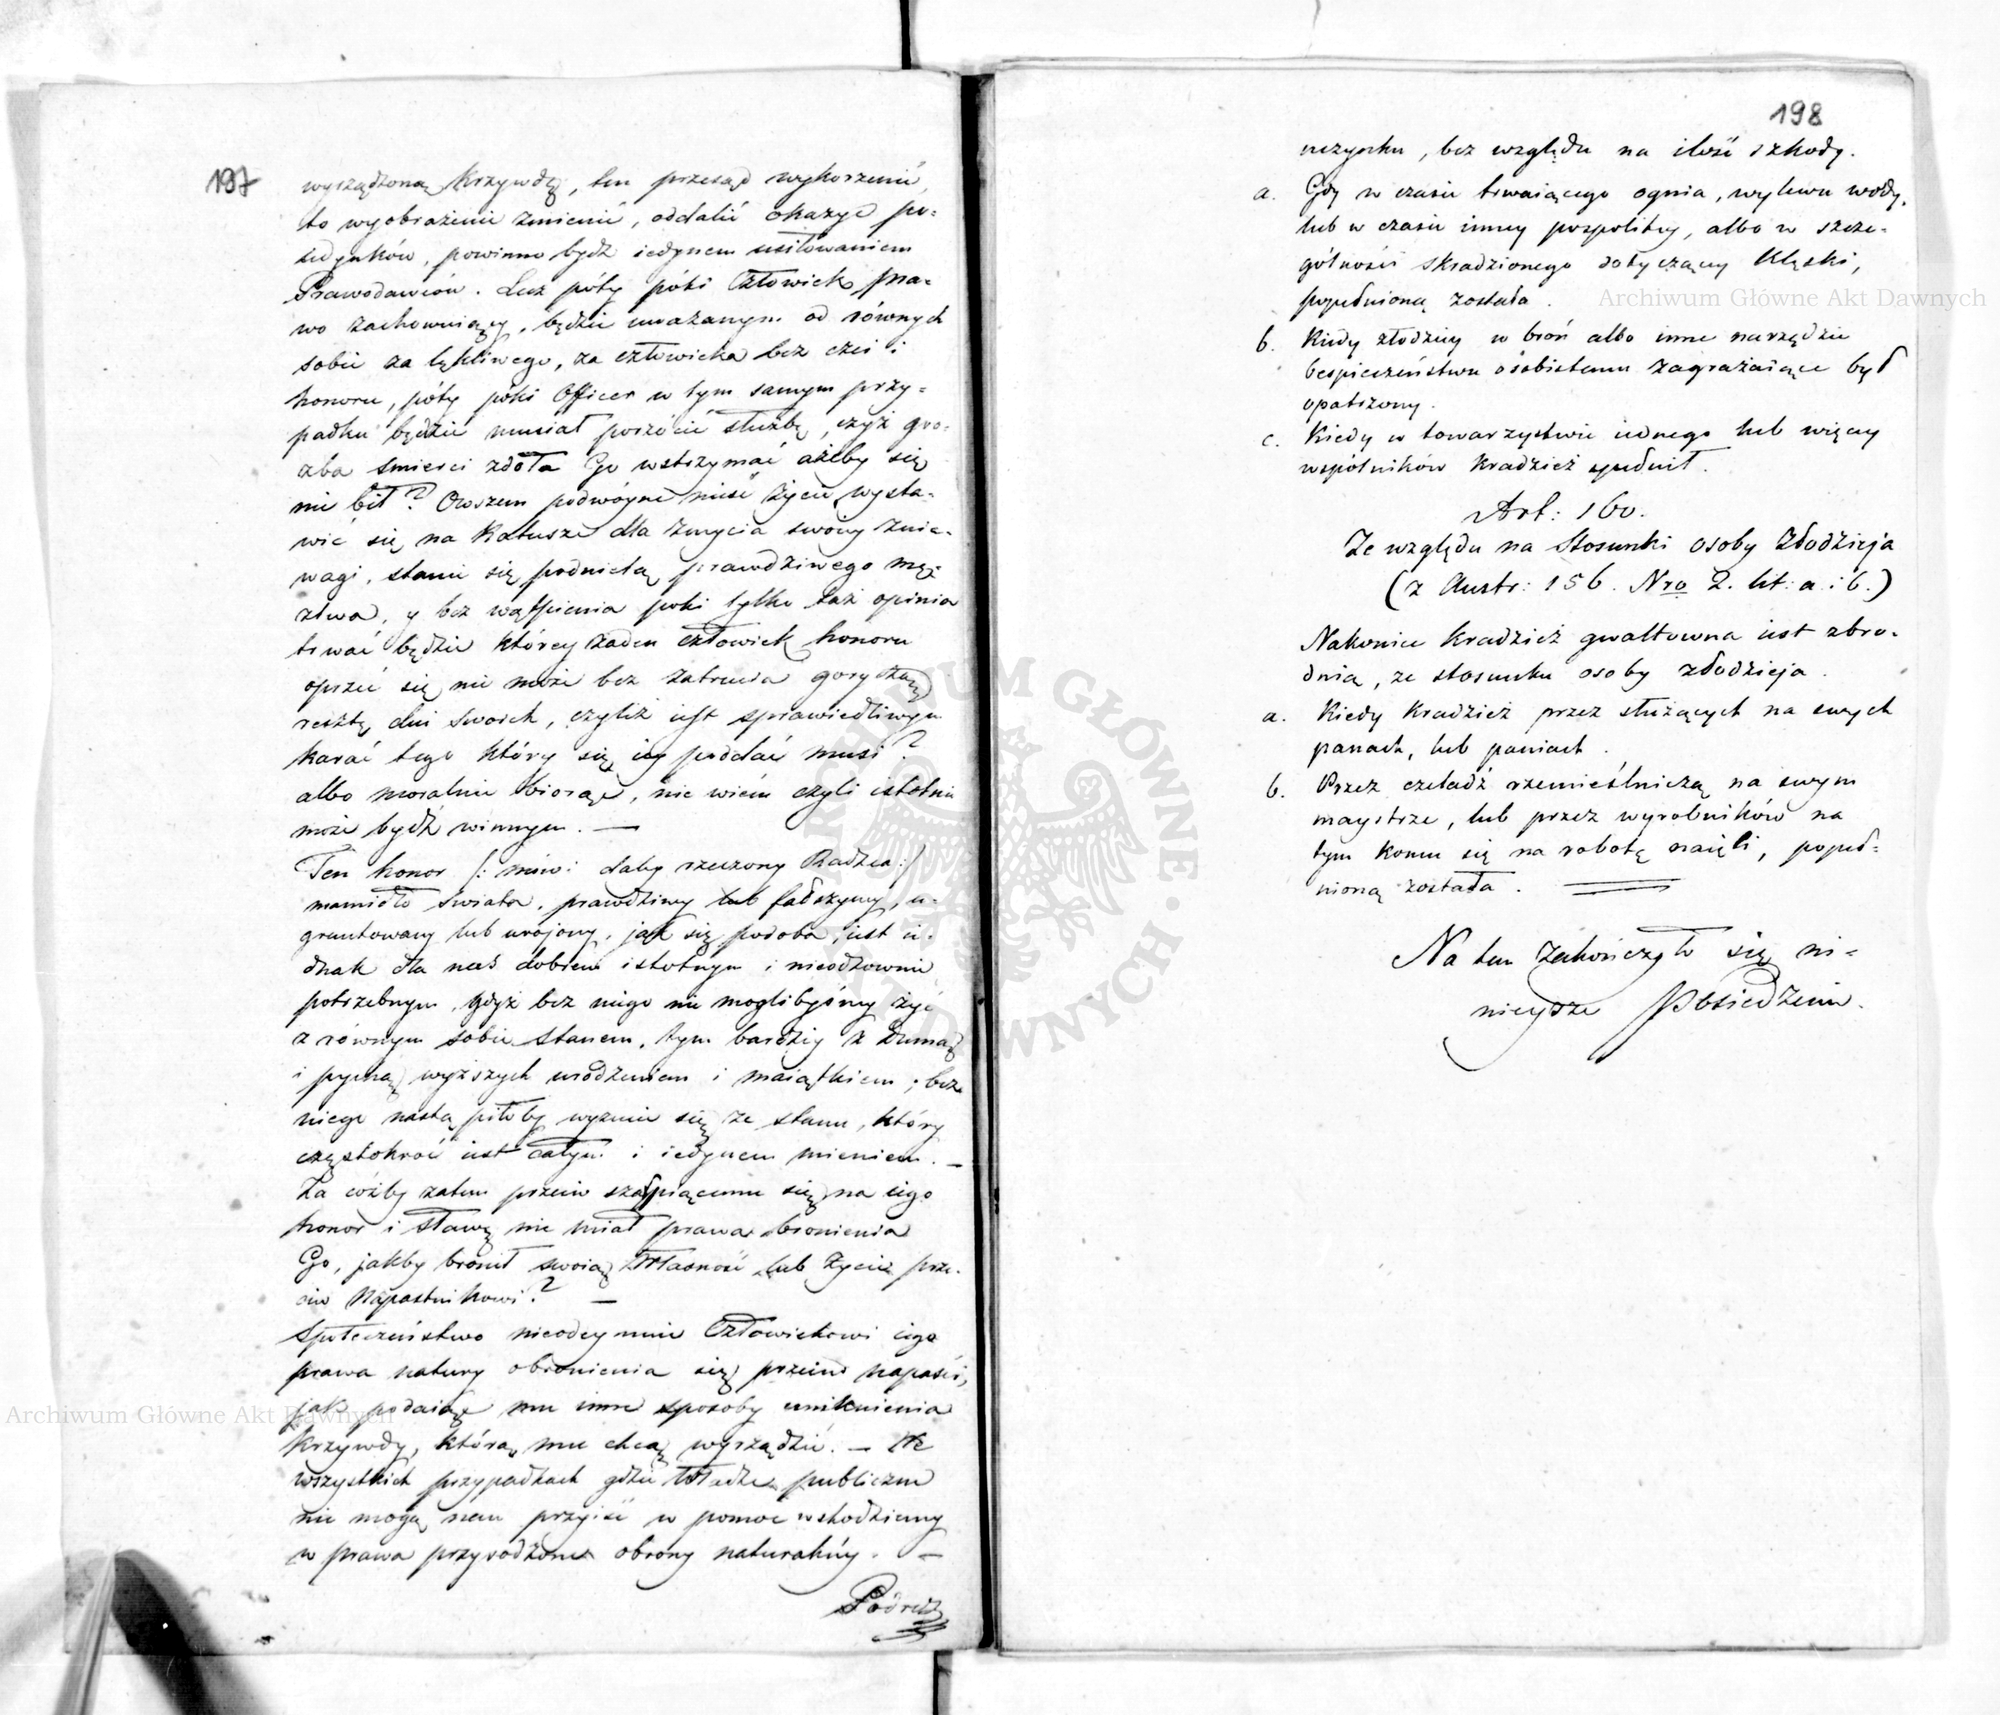 197
wyrządzoną Krzywdę, ten przesąd wykorzenić,
to wyobrażenie zmienić, oddalić okazye po-
iedynków, powinno bydź iedynem usiłowaniem
Prawodawców. Lecz póty póki Człowiek pra-
wo zachowuiący, będzie uważanym od równych
sobie za lękliwego, za człowieka bez czci i
honoru, póty póki Officer w tym samym przy-
padku będzie musiał porzucić służbę, czyż gro-
zba śmierci zdoła Go wstrzymać ażeby się
nie bił? Owszem podwóyne nieść życie, wysta-
wić się na Katusze dla zmycia swoiey znie-
wagi, stanie się podnietą prawdziwego mę-
ztwa, y bez wątpienia poki tylko taż opinia
trwać będzie którey żaden człowiek honoru
oprzeć się nie może bez zatrucia goryczą
resztę dni swoich, czyliż iest sprawiedliwym
karać tego który się iey poddać musi?
albo moralnie biorąc, nie wiem czyli istotnie
może bydź winnym. —
Ten honor /: mówi daley rzeczony Radzca :/
mamidło świata, prawdziwy lub fałszywy, u-
gruntowany lub urojony, jak się podoba, iest ie-
dnak dla nas dobrem istotnym i nieodzownie
potrzebnym, gdyż bez niego nie moglibyśmy żyć
z równym sobie stanem, tym bardziey z Dumą
i pychą wyższych urodzeniem i maiątkiem; bez
niego nastąpiłoby wyzucie się ze stanu, który
częstokroć iest całym i iedynem mieniem. —
Za cóżby zatem przeciw szarpiącemu się na iego
honor i sławę nie miał prawa bronienia
Go, jakby bronił swoią Własność lub życie prze-
ciw Napastnikowi? —
Społeczeństwo nieodeymuie Człowiekowi iego
prawa natury obronienia się przeciw napaści,
jak podaiąc mu inne sposoby uniknienia
Krzywdy, którą mu chcą wyrządzić. — We
wszystkich przypadkach gdzie Władze publiczne
nie mogą nam przyiść w pomoc wchodziemy
w prawa przyrodzone obrony naturalney. —
198
uczynku, bez względu na ilość szkody.
a. Gdy w czasie trwaiącego ognia, wylewu wody,
lub w czasie inney pospolitey, albo w szcze-
gólności skradzionego dotyczącey Klęski,
popełnioną została.
b. Kiedy złodziey w broń albo inne narzędzie
bespieczeństwu osobistemu zagrażaiące był
opatrzony.
c. Kiedy w towarzystwie iednego lub więcey
wspólników Kradzież spełnił.
Art: 160.
Ze względu na Stosunki osoby Złodzieja
(z Austr: 156. Nro 2. lit: a. i b.)
Nakoniec Kradzież gwałtowna iest zbro-
dnią, ze stosunku osoby złodzieja.
a. Kiedy Kradzież przez służących na swych
panach, lub paniach.
b. Przez czeladź rzemieślniczą na swym
maystrze, lub przez wyrobników na
tym Komu się na robotę naięli, popeł-
nioną została.
Na tem zakończyło się ni-
nieysze Posiedzenie.
Archiwum Główne Akt Dawnych
Archiwum Główne Akt Dawnych
ARCHIWUM GŁÓWNE AKT DAWNYCH